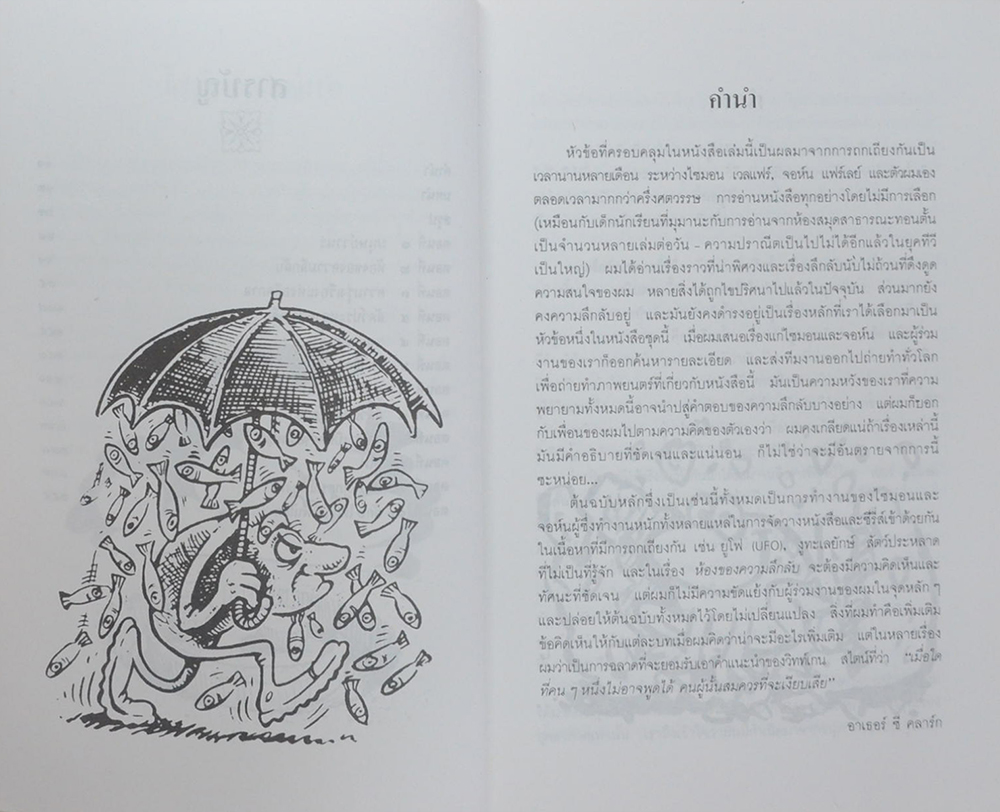 คำนำ
หัวข้อที่ครอบคลุมในหนังสือเล่มนี้เป็นผลมาจากการถกเถียงกันเป็น
เวลานานหลายเดือน ระหว่างไซมอน เวลแฟร์, จอห์น แฟร์เลย์ และตัวผมเอง
ตลอดเวลามากกว่าครึ่งศตวรรษ การอ่านหนังสือทุกอย่างโดยไม่มีการเลือก
(เหมือนกับเด็กนักเรียนที่มุมานะกับการอ่านจากห้องสมุดสาธารณะทอนตั้น
เป็นจำนวนหลายเล่มต่อวัน - ความปราณีตเป็นไปไม่ได้อีกแล้วในยุคที่ทีวี
เป็นใหญ่) ผมได้อ่านเรื่องราวที่น่าพิศวงและเรื่องลึกลับนับไม่ถ้วนที่ดึงดูด
ความสนใจของผม หลายสิ่งได้ถูกไขปริศนาไปแล้วในปัจจุบัน ส่วนมากยัง
คงความลึกลับอยู่ และมันยังคงดำรงอยู่เป็นเรื่องหลักที่เราได้เลือกมาเป็น
หัวข้อหนึ่งในหนังสือชุดนี้ เมื่อผมเสนอเรื่องแก่ไซมอนและจอห์น และผู้ร่วม
งานของเราก็ออกค้นหารายละเอียด และส่งทีมงานออกไปถ่ายทำทั่วโลก
เพื่อถ่ายทำภาพยนตร์ที่เกี่ยวกับหนังสือนี้ มันเป็นความหวังของเราที่ความ
พยายามทั้งหมดนี้อาจนำปสู่คำตอบของความลึกลับบางอย่าง แต่ผมก็บอก
กับเพื่อนของผมไปตามความคิดของตัวเองว่า ผมคงเกลียดแน่ถ้าเรื่องเหล่านี้
มันมีคำอธิบายที่ชัดเจนและแน่นอน ก็ไม่ใช่ว่าจะมีอันตรายจากการนี้
ซะหน่อย...
ต้นฉบับหลักซึ่งเป็นเช่นนี้ทั้งหมดเป็นการทำงานของไซมอนและ
จอห์นผู้ซึ่งทำงานหนักทั้งหลายแหล่ในการจัดวางหนังสือและซีรีส์เข้าด้วยกัน
ในเนื้อหาที่มีการถกเถียงกัน เช่น ยูโฟ (UFO), งูทะเลยักษ์ สัตว์ประหลาด
ที่ไม่เป็นที่รู้จัก และในเรื่อง ห้องของความลึกลับ จะต้องมีความคิดเห็นและ
ทัศนะที่ชัดเจน แต่ผมก็ไม่มีความขัดแย้งกับผู้ร่วมงานของผมในจุดหลัก ๆ
และปล่อยให้ต้นฉบับทั้งหมดไว้โดยไม่เปลี่ยนแปลง สิ่งที่ผมทำคือเพิ่มเติม
ข้อคิดเห็นให้กับแต่ละบทเมื่อผมคิดว่าน่าจะมีอะไรเพิ่มเติม แต่ในหลายเรื่อง
ผมว่าเป็นการฉลาดที่จะยอมรับเอาคำแนะนำของวิทท์เกน สไตน์ที่ว่า "เมื่อใด
ที่คน ๆ หนึ่งไม่อาจพูดได้ คนผู้นั้นสมควรที่จะเงียบเสีย"
อาเธอร์ ซี คลาร์ก